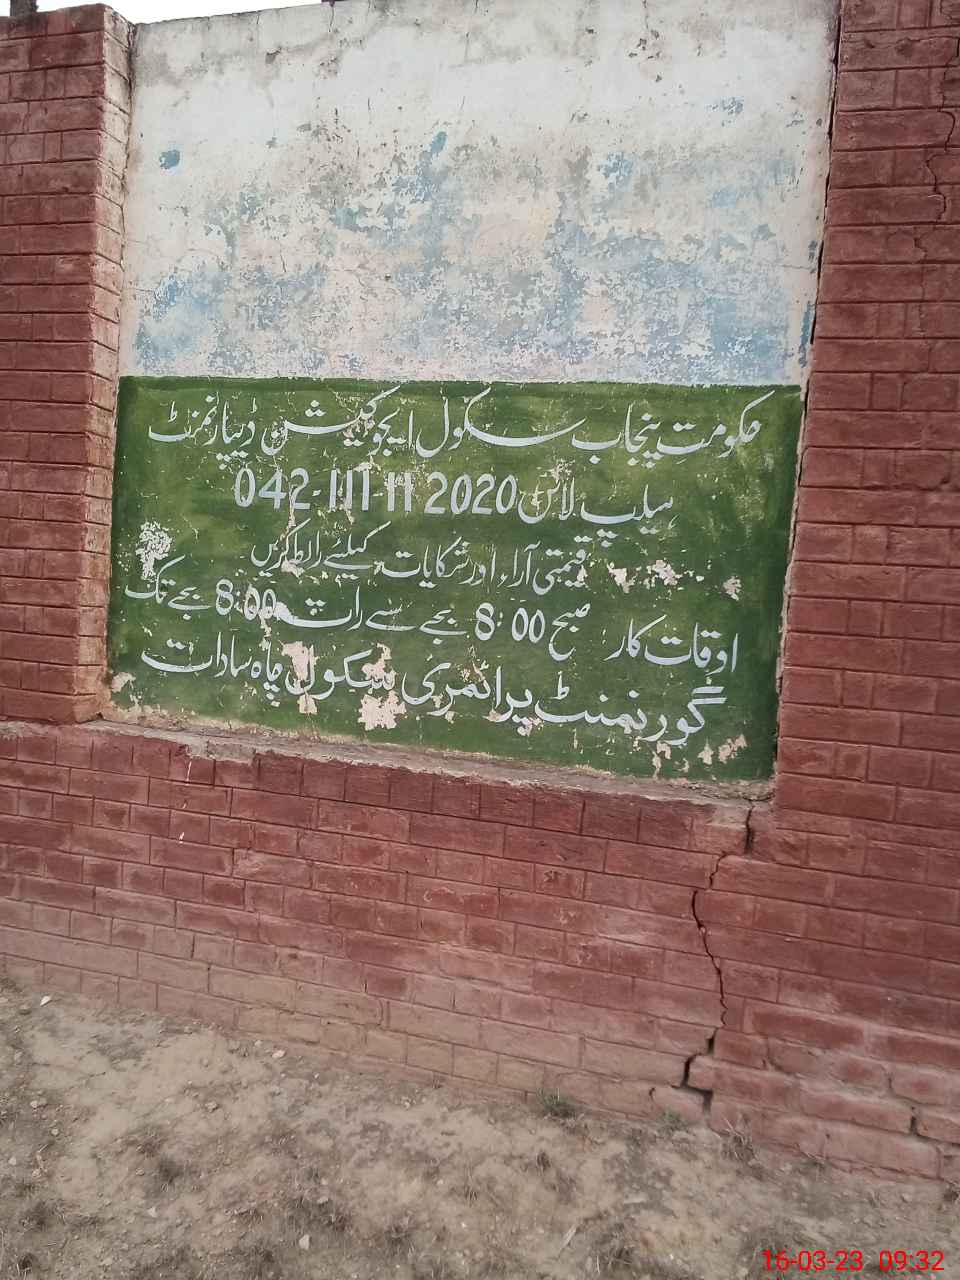 حکومتِ پنجاب سکول ایجوکیشن ڈیپارٹمنٹ
ہیلپ لائن 042-111-11 2020
قیمتی آراء اور شکایات کیلئے رابطہ کریں
اوقات کار صبح 8:00 بجے سے رات 8:00 بجے تک
گورنمنٹ پرائمری سکول چاہ سادات
16-03-23 09:32